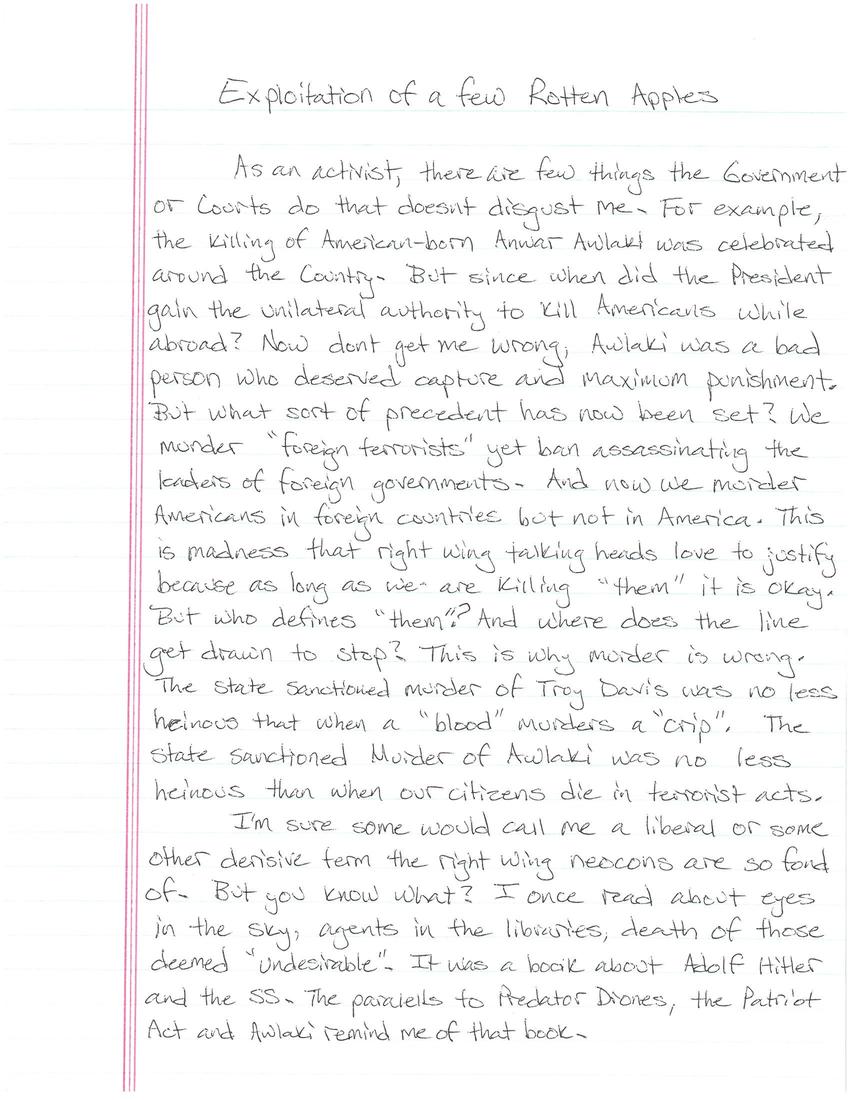 Exploitation of a few Rotten Apples
As an activist, there are few things the Government
or Courts do that doesnt disgust me. For example,
the killing of American-born Anwar Awlaki was celebrated
around the Country. But since when did the President
gain the unilateral authority to kill Americans while
abroad? Now dont get me wrong, Awlaki was a bad
person who deserved capture and maximum punishment.
But what sort of precedent has now been set? We
murder "foreign terrorists" yet ban assassinating the
leaders of foreign governments. And now we murder
Americans in foreign countries but not in America. This
is madness that right wing talking heads love to justify
because as long as we are killing "them" it is okay.
But who defines "them"? And where does the line
get drawn to stop? This is why murder is wrong.
The state sanctioned murder of Troy Davis was no less
heinous that when a "blood" murders a "crip". The
state sanctioned Murder of Awlaki was no less
heinous than when our citizens die in terrorist acts.
I'm sure some would call me a liberal or some
other derisive term the right wing neocons are so fond
of. But you know what? I once read about eyes
in the sky, agents in the libraries, death of those
deemed "undesirable". It was a book about Adolf Hitler
and the SS. The paralells to Predator Drones, the Patriot
Act and Awlaki remind me of that book.